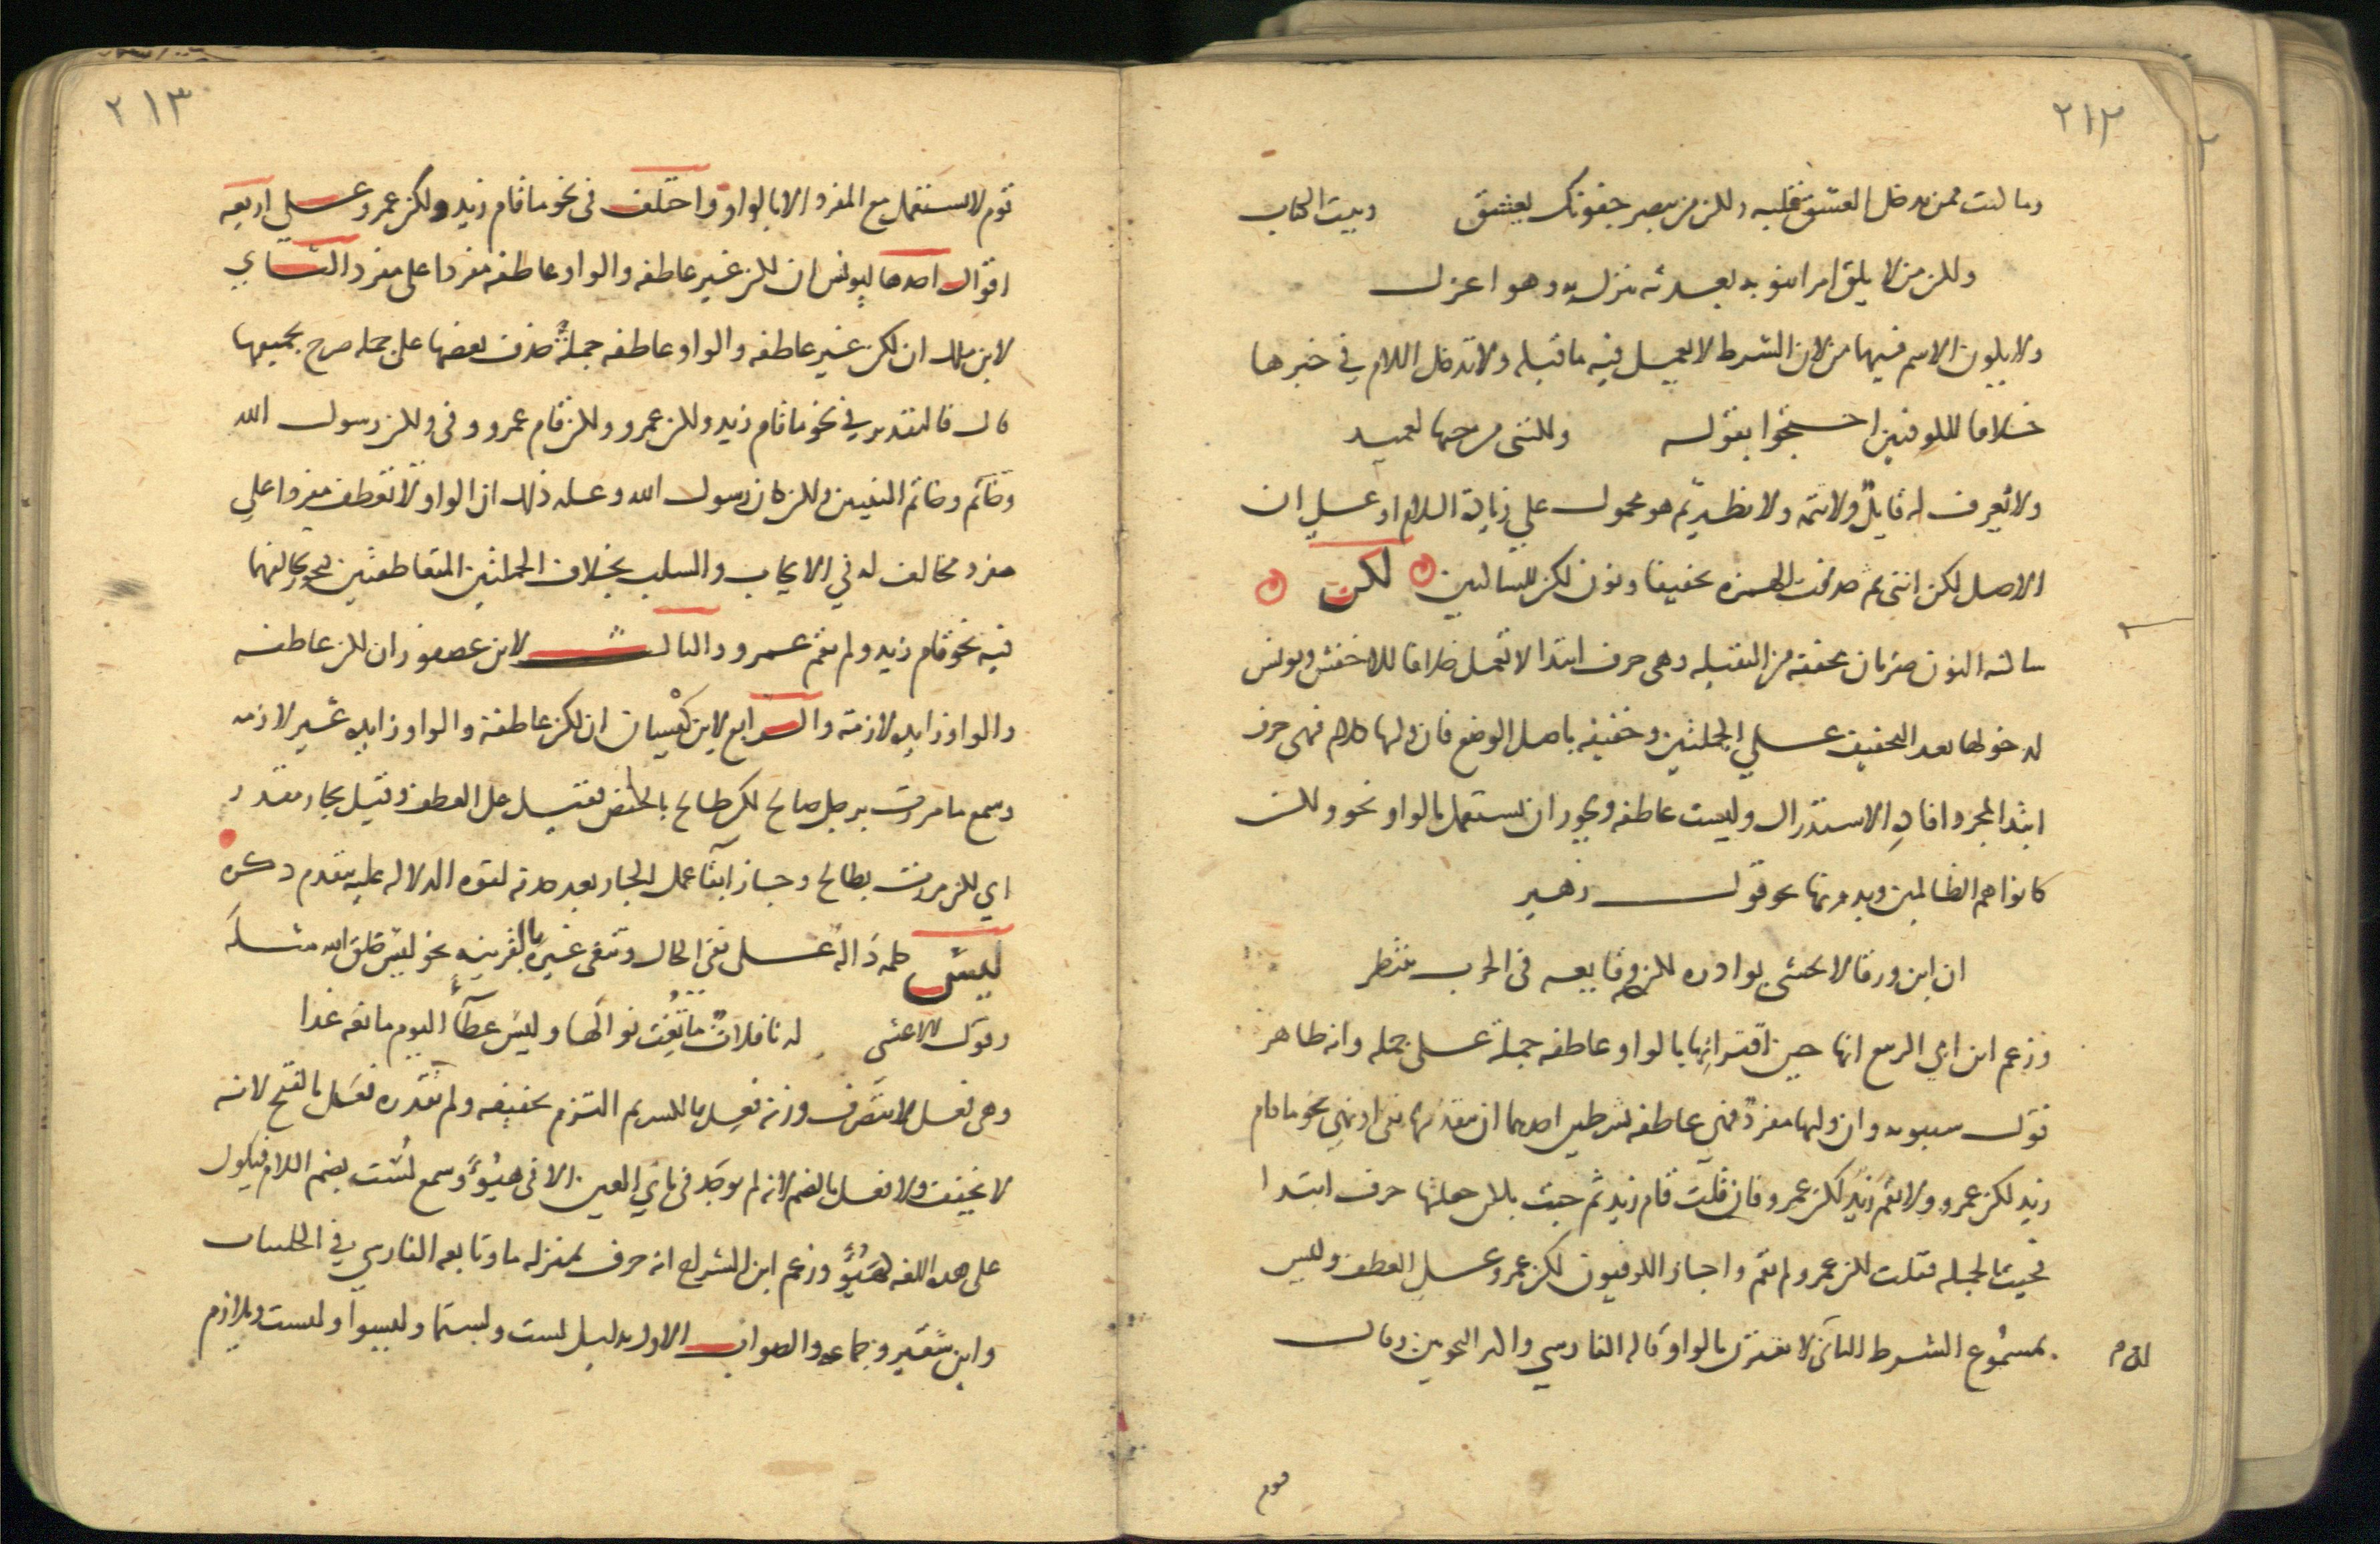 ٢١٢
وما كنت ممن يدخل العشق قلبه ولكن من يبصر جفونك يعشق وبيت الكتاب
ولكن من لا يلق امرا ينوبه بعدته ينزل به وهو اعزل
ولا يكون الاسم فيهما من لان الشرط لا يعمل فيه ما قبله ولا تدخل اللام في خبرها
خلافا للكوفيين احتجوا بقوله ولكنني من حبها لعميد
ولا يعرف له قايل ولا تتمه ولا نظير ثم هو محمول علي زيادة اللام او علي ان
الاصل لكن انني ثم حذفت الهمزه تخفيفا ونون لكن للساكنين لكن
ساكنه النون ضربان مخففه من الثقيله وهي حرف ابتدا لا تعمل خلافا للاخفش ويونس
لدخولها بعد التخفيف علي الجملتين وخفيفه باصل الوضع فان وليها كلام فهي حرف
ابتدا لمجرد افادة الاستدراك وليست عاطفه ويجوز ان تستعمل بالواو نحو ولكن
كانوا هم الظالمين وبدونها نحو قول زهير
ان ابن ورقا لا تخشى بوادره لكن وقايعه في الحرب تنتظر
وزعم ابن ابي الربيع انها حين اقترانها بالواو عاطفه جملة على جمله وانه ظاهر
قول سيبويه وان وليها مفرد فهي عاطفه بشرطين احدهما ان يتقدمها نفي او نهي نحو ما قام
زيد لكن عمرو ولا يقم زيد لكن عمرو فان قلت قام زيد ثم جيت بلكن جعلتها حرف ابتدا
فجيت بالجمله فقلت لكن عمرو لم يقم واجاز الكوفيون لكن عمرو على العطف وليس
بمسموع الشرط الثاني لا تقترن بالواو قاله الفارسي واكثر النحويين وقال
قوم
٢١٣
قوم لا تستعمل مع المفرد الا بالواو واختلف في نحو ما قام زيد ولكن عمرو على اربعه
اقوال احدها ليونس ان لكن غير عاطفه والواو عاطفه مفردا على مفرد الثاني
لابن مالك ان لكن غير عاطفه والواو عاطفه جملة حذف بعضها على جمله صرح بجميعها
قال فالتقدير في نحو ما قام زيد ولكن عمرو ولكن قام عمرو وفي ولكن رسول الله
وخاتم وخاتم النبيين ولكن كان رسول الله وعله ذلك ان الواو لا تعطف مفردا علي
مفرد مخالف له في الايجاب والسلب بخلاف الجملتين المتعاطفتين فيجوز تخالفهما
فيه نحو قام زيد ولم يقم عمرو والثالث لابن عصفور ان لكن عاطفه
والواو زايده لازمة والرابع لابن كيسان ان لكن عاطفة والواو زايده غير لازمه
وسمع ما مررت برجل صالح لكن طالح بالخفض فقيل على العطف وقيل بجار مقدر
اي لكن مررت بطالح وجاز ابقا عمل الجار بعد حذفه لقوه الدلاله عليه بتقدم ذكره
ليس كلمه داله على نفي الحال وتنفي غيره بالقرينه نحو ليس خلق الله مثله
وقول الاعشى له نافلات ما يغب نوالها وليس عطاء اليوم مانعه غدا
وهي فعل لا يتصرف وزنه فعل بالكسر ثم التزم تخفيفه ولم نقدره فعل بالفتح لانه
لا يخفف ولا فعل بالضم لانه لم يوجد في يائي العين الا في هيؤ وسمع لست بضم اللام فيكون
على هذه اللغه كهيؤ وزعم ابن السراج انه حرف بمنزله ما وتابعه الفارسي في الحلبيات
وابن شقير وجماعه والصواب الاول بدليل لست ولستما وليسوا وليست ويلازم